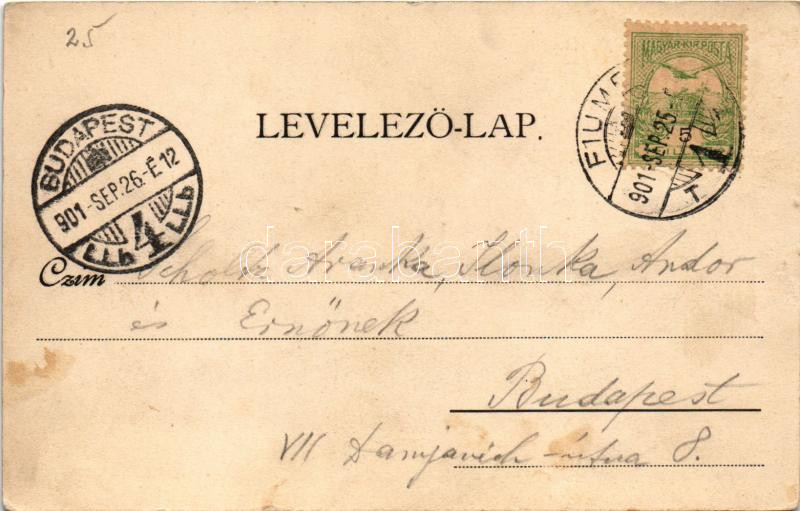 25
MAGYAR·KIR·POSTA
FIUME
901-SEP.25
T 1
LEVELEZŐ-LAP.
BUDAPEST
901-SEP.26.-É12
4
darabanth
Czím Scholtz Aranka, Ilonka, Andor
és Ernőnek
Budapest
VII Damjanich-utca 8.